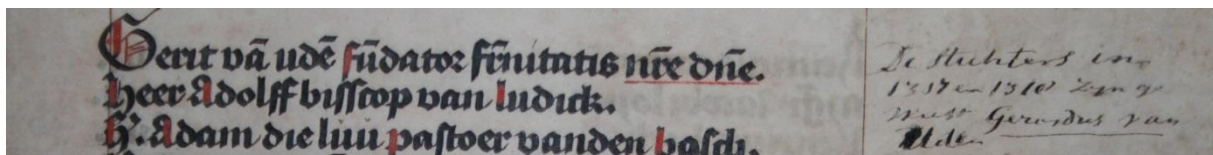 Gerit vā udē fūdator fr̄nitatis nr̄e dn̄e.
Heer Adolff bisscop van ludick.
H. Adam die luu pastoer vanden bosch.
De stichters in
1317 en 1318 zyn ge
weest Gerardus van
Uden